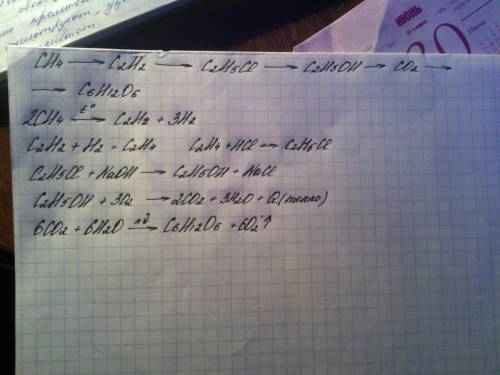 CH4 → C2H2 → C2H5Cl → C2H5OH → CO2 →
→ C6H12O6
2CH4 t° → C2H2 + 3H2
C2H2 + H2 = C2H4 C2H4 + HCl → C2H5Cl
C2H5Cl + NaOH → C2H5OH + NaCl
C2H5OH + 3O2 → 2CO2 + 3H2O + Q (тепло)
6CO2 + 6H2O → C6H12O6 + 6O2↑
ИЮНЬ